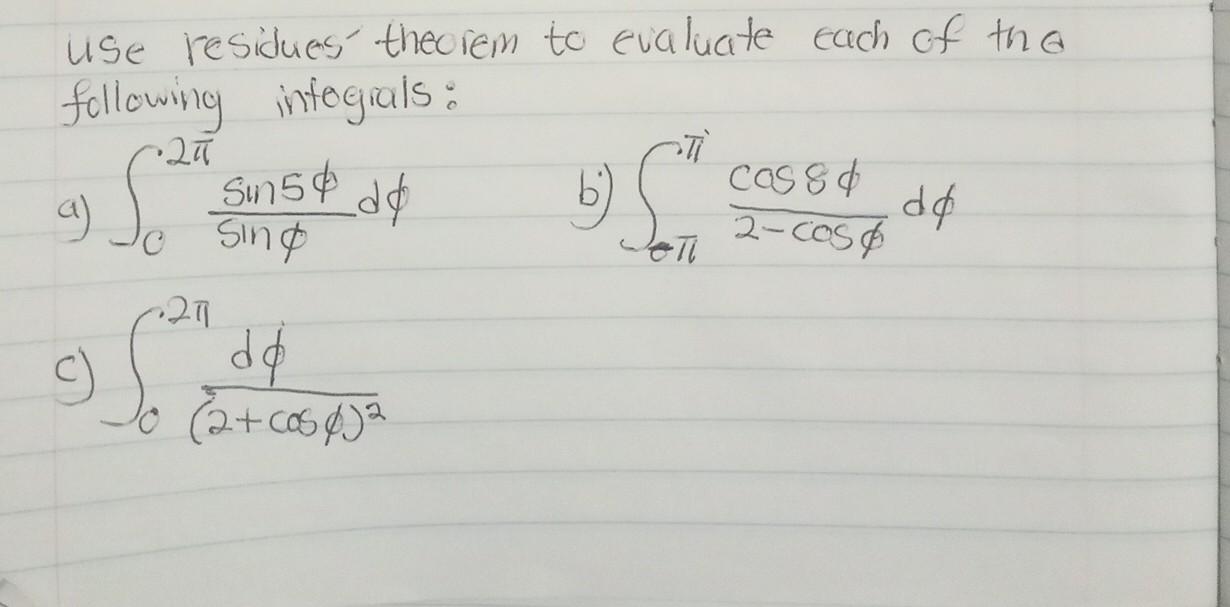 use residues' theorem to evaluate each of the
following integrals:
a) ∫₀^2π sin5ϕ/sinϕ dϕ b) ∫₋π^π cos8ϕ/2-cosϕ dϕ
c) ∫₀^2π dϕ/(2+cosϕ)²